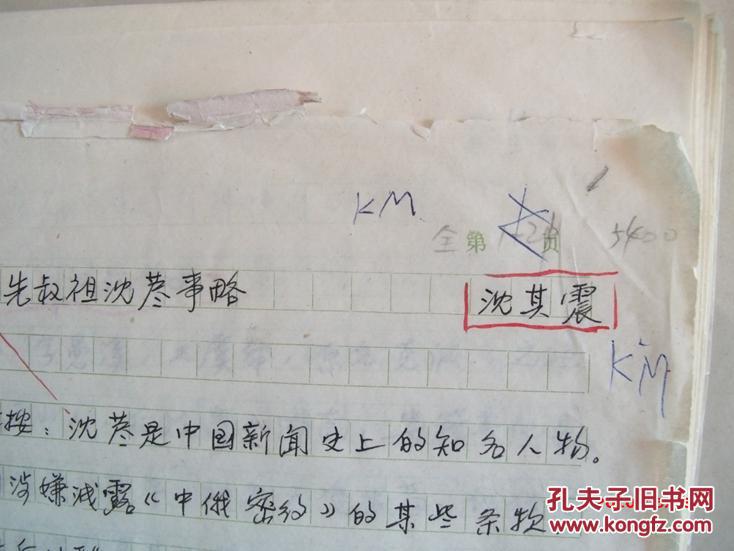 KM
全第 页 5400
先叔祖沈荩事略 沈其震
KM
按：沈荩是中国新闻史上的知名人物。
涉嫌泄露《中俄密约》的某些条物
孔夫子旧书网
www.kongfz.com